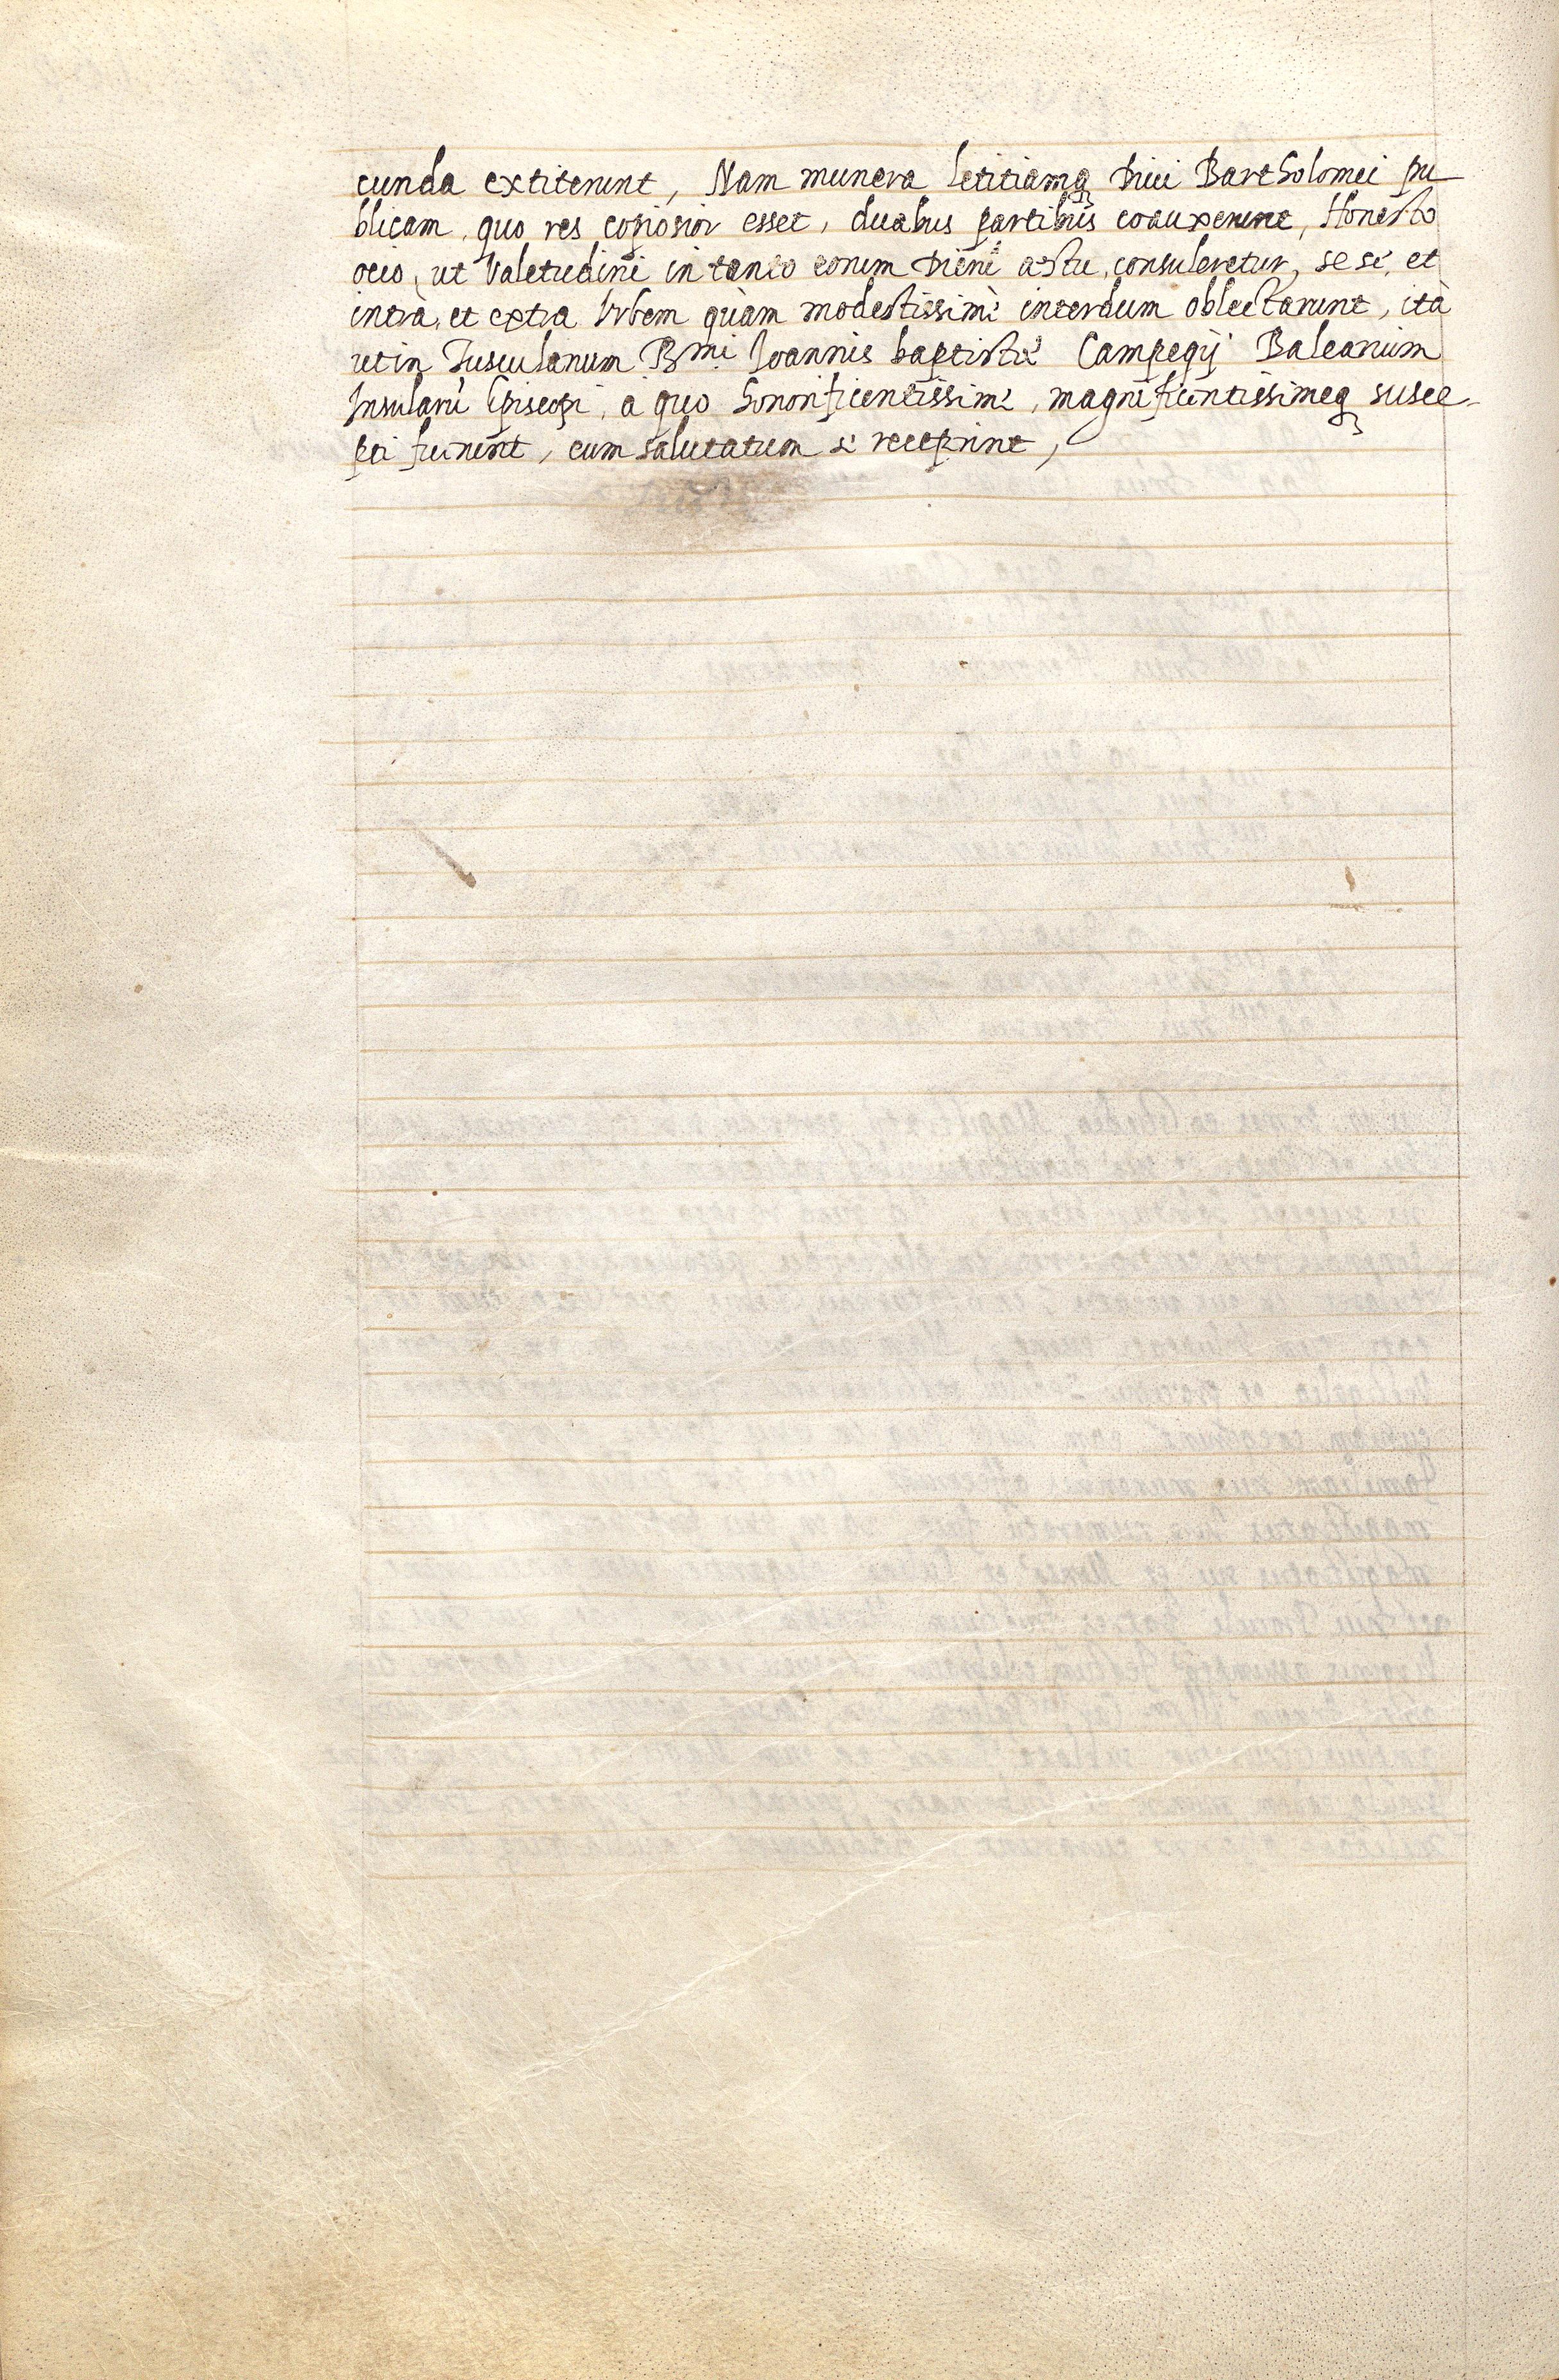 cunda extiterunt, Nam munera letitiamq Diui Bartholomei pu
blicam, quo res copiosior esset, duabus partibus coauxerunt, Honesto
ocio, ut Valetudini in tanto eorum æstu, consuleretur, sese, et
intrà, et extra Vrbem quàm modestissimè interdum oblectarunt, ità
ut in Tusculanum Rmi Ioannis baptistæ Campegij Balearium
Insularū Episcopi, a quo honorificentissimè, magnificentissimeq susce-
pti fuerunt, eum salutatum se receperint,